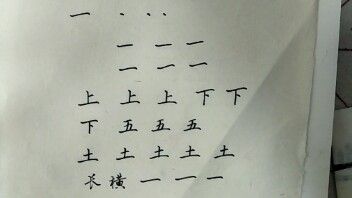 一 · · ·
一 一 一
一 一 一
上 上 上 下 下
下 五 五 五
土 土 土 土 土
长 横 一 一 一